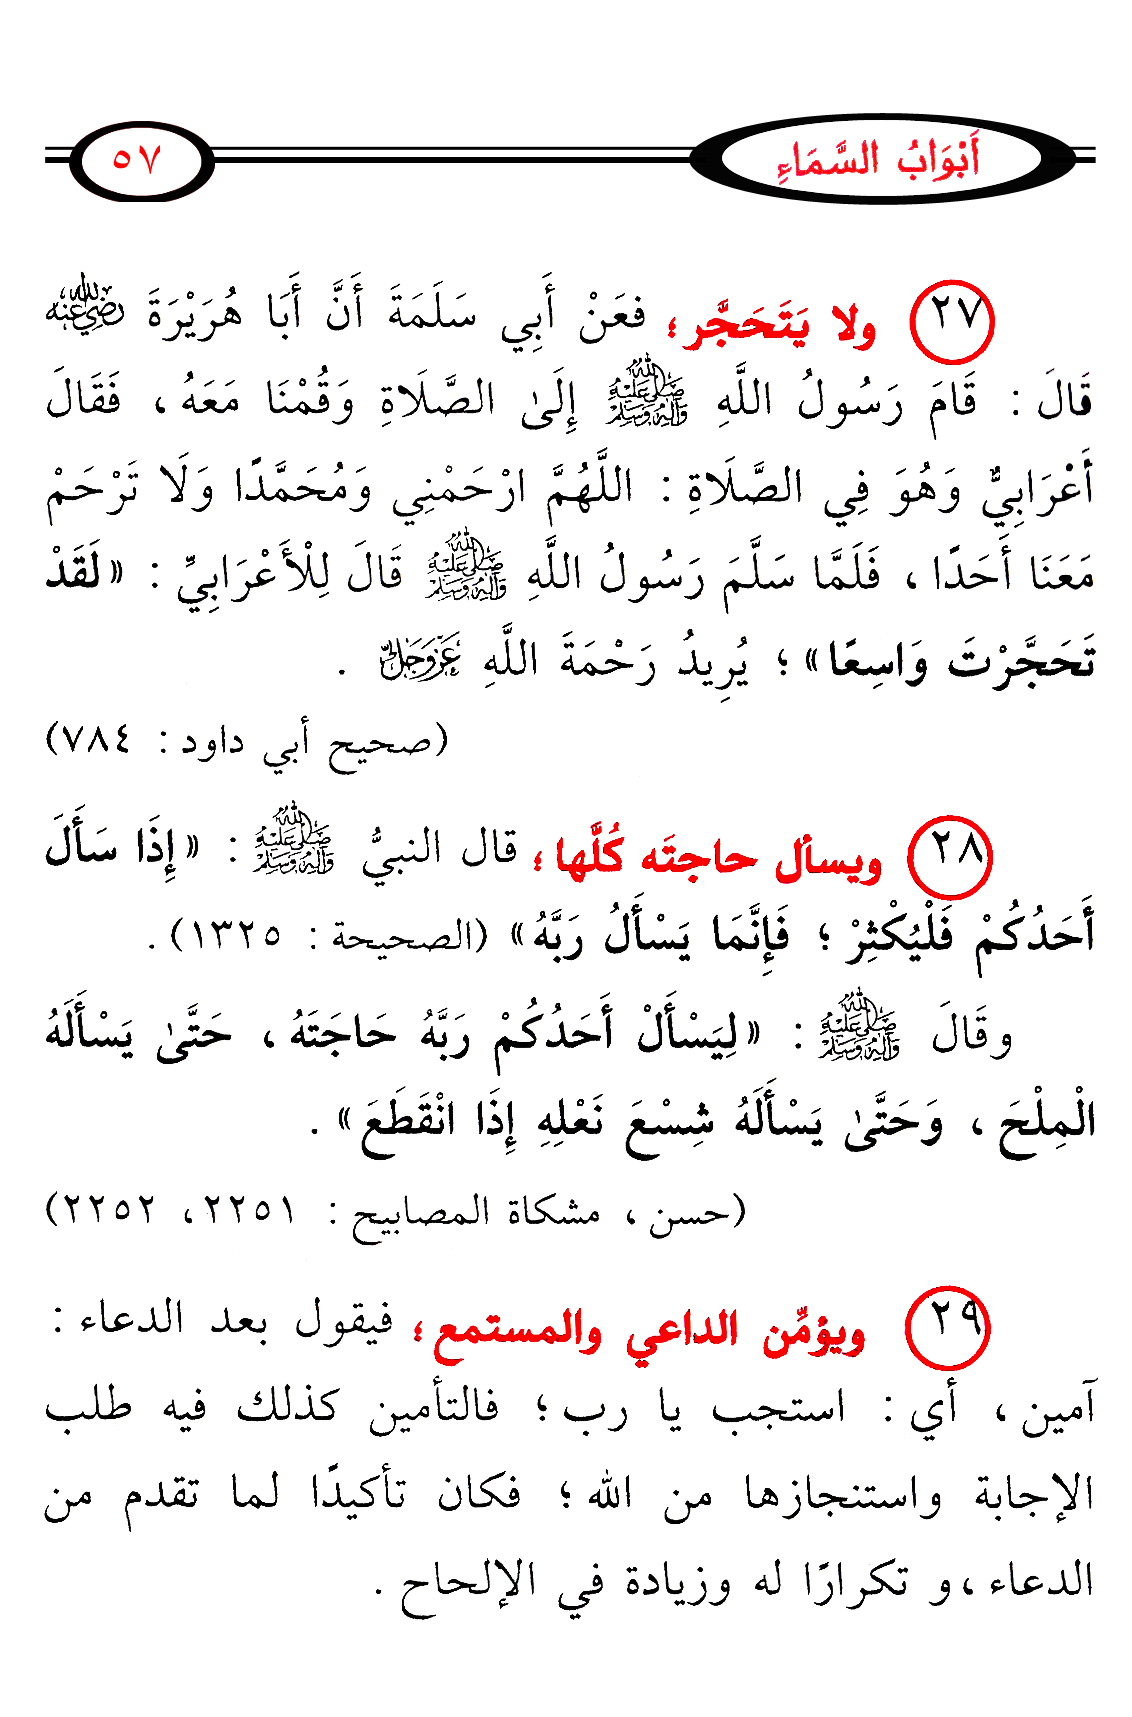 أَبْوَابُ السَّمَاءِ
٥٧
٢٧ ولا يَتَحَجَّر؛ فعَنْ أَبِي سَلَمَةَ أَنَّ أَبَا هُرَيْرَةَ رضي الله عنه
قَالَ: قَامَ رَسُولُ اللَّهِ صلى الله عليه وآله وسلم إِلَىٰ الصَّلَاةِ وَقُمْنَا مَعَهُ، فَقَالَ
أَعْرَابِيٌّ وَهُوَ فِي الصَّلَاةِ: اللَّهُمَّ ارْحَمْنِي وَمُحَمَّدًا وَلَا تَرْحَمْ
مَعَنَا أَحَدًا، فَلَمَّا سَلَّمَ رَسُولُ اللَّهِ صلى الله عليه وآله وسلم قَالَ لِلْأَعْرَابِيِّ: «لَقَدْ
تَحَجَّرْتَ وَاسِعًا»؛ يُرِيدُ رَحْمَةَ اللَّهِ عَزَّ وَجَلَّ.
(صحيح أبي داود: ٧٨٤)
٢٨ ويسأل حاجتَه كُلَّها؛ قال النبيُّ صلى الله عليه وآله وسلم: «إِذَا سَأَلَ
أَحَدُكُمْ فَلْيُكْثِرْ؛ فَإِنَّمَا يَسْأَلُ رَبَّهُ» (الصحيحة: ١٣٢٥).
وقَالَ صلى الله عليه وآله وسلم: «لِيَسْأَلْ أَحَدُكُمْ رَبَّهُ حَاجَتَهُ، حَتَّىٰ يَسْأَلَهُ
الْمِلْحَ، وَحَتَّىٰ يَسْأَلَهُ شِسْعَ نَعْلِهِ إِذَا انْقَطَعَ».
(حسن، مشكاة المصابيح: ٢٢٥١، ٢٢٥٢)
٢٩ ويؤمِّن الداعي والمستمع؛ فيقول بعد الدعاء:
آمين، أي: استجب يا رب؛ فالتأمين كذلك فيه طلب
الإجابة واستنجازها من الله؛ فكان تأكيدًا لما تقدم من
الدعاء،و تكرارًا له وزيادة في الإلحاح.